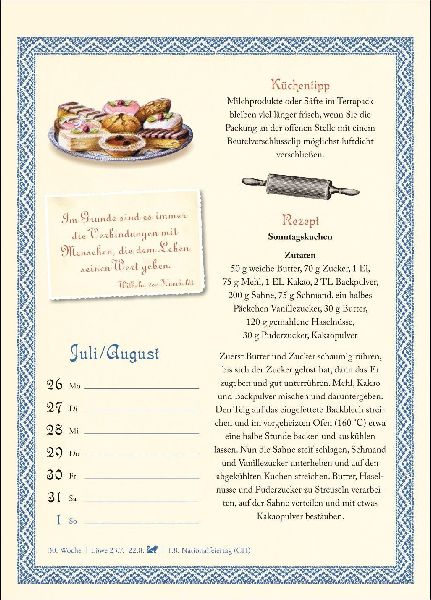 Küchentipp
Milchprodukte oder Säfte im Tetrapack
bleiben viel länger frisch, wenn Sie die
Packung an der offenen Stelle mit einem
Beutelverschlussclip möglichst luftdicht
verschließen.
Im Grunde sind es immer
die Verbindungen mit
Menschen, die dem Leben
seinen Wert geben.
Wilhelm von Humboldt
Rezept
Sonntagskuchen
Zutaten
50 g weiche Butter, 70 g Zucker, 1 Ei,
75 g Mehl, 1 EL Kakao, 2 TL Backpulver,
200 g Sahne, 75 g Schmand, ein halbes
Päckchen Vanillezucker, 30 g Butter,
120 g gemahlene Haselnüsse,
30 g Puderzucker, Kakaopulver
Zuerst Butter und Zucker schaumig rühren,
bis sich der Zucker gelöst hat, dann das Ei
zugeben und gut unterrühren. Mehl, Kakao
und Backpulver mischen und daruntergeben.
Den Teig auf das eingefettete Backblech strei-
chen und im vorgeheizten Ofen (160 °C) etwa
eine halbe Stunde backen und auskühlen
lassen. Nun die Sahne steif schlagen, Schmand
und Vanillezucker unterheben und auf den
abgekühlten Kuchen streichen. Butter, Hasel-
nüsse und Puderzucker zu Streuseln verarbei-
ten, auf der Sahne verteilen und mit etwas
Kakaopulver bestäuben.
Juli/August
26 Mo
27 Di
28 Mi
29 Do
30 Fr
31 Sa
1 So
30. Woche | Löwe 23.7.–22.8. 1.8. Nationalfeiertag (CH)